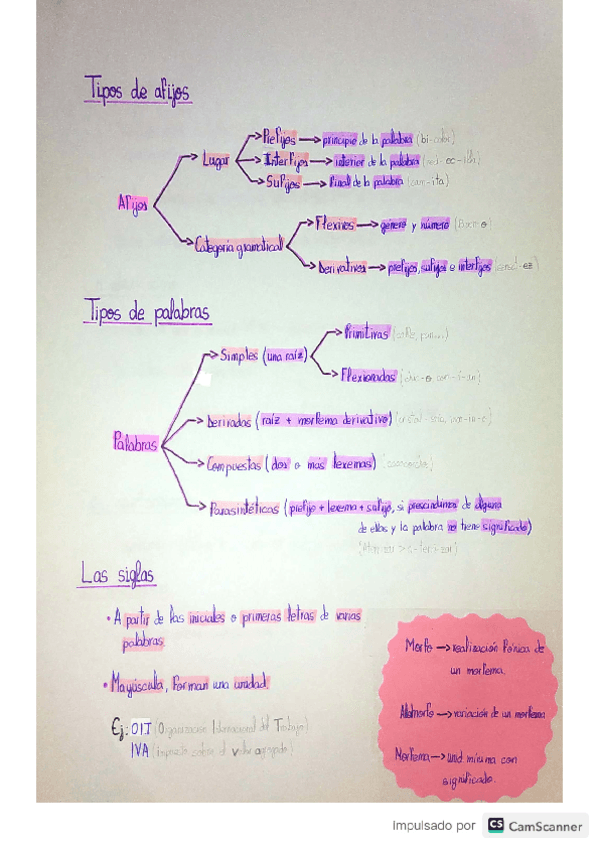 Tipos de afijos
Afijos
Lugar
Prefijos → principio de la palabra (bi-color)
Interfijos → interior de la palabra
Sufijos → final de la palabra (cam-ita)
Categoría gramatical
Flexivos → género y número
Derivativos → prefijos, sufijos e interfijos
Tipos de palabras
Palabras
Simples (una raíz)
Primitivas
Flexionadas
Derivadas (raíz + morfema derivativo)
Compuestas (dos o más lexemas)
Parasintéticas (prefijo + lexema + sufijo, si prescindimos de alguna
de ellos y la palabra no tiene significado)
Las siglas
• A partir de las iniciales o primeras letras de varias
palabras.
• Mayúscula, forman una unidad.
Ej: OIT (Organización Internacional del Trabajo)
IVA (impuesto sobre el valor agregado)
Morfo → realización fónica de
un morfema.
Alomorfo → variación de un morfema
Morfema → unid mínima con
significado.
Impulsado por CS CamScanner